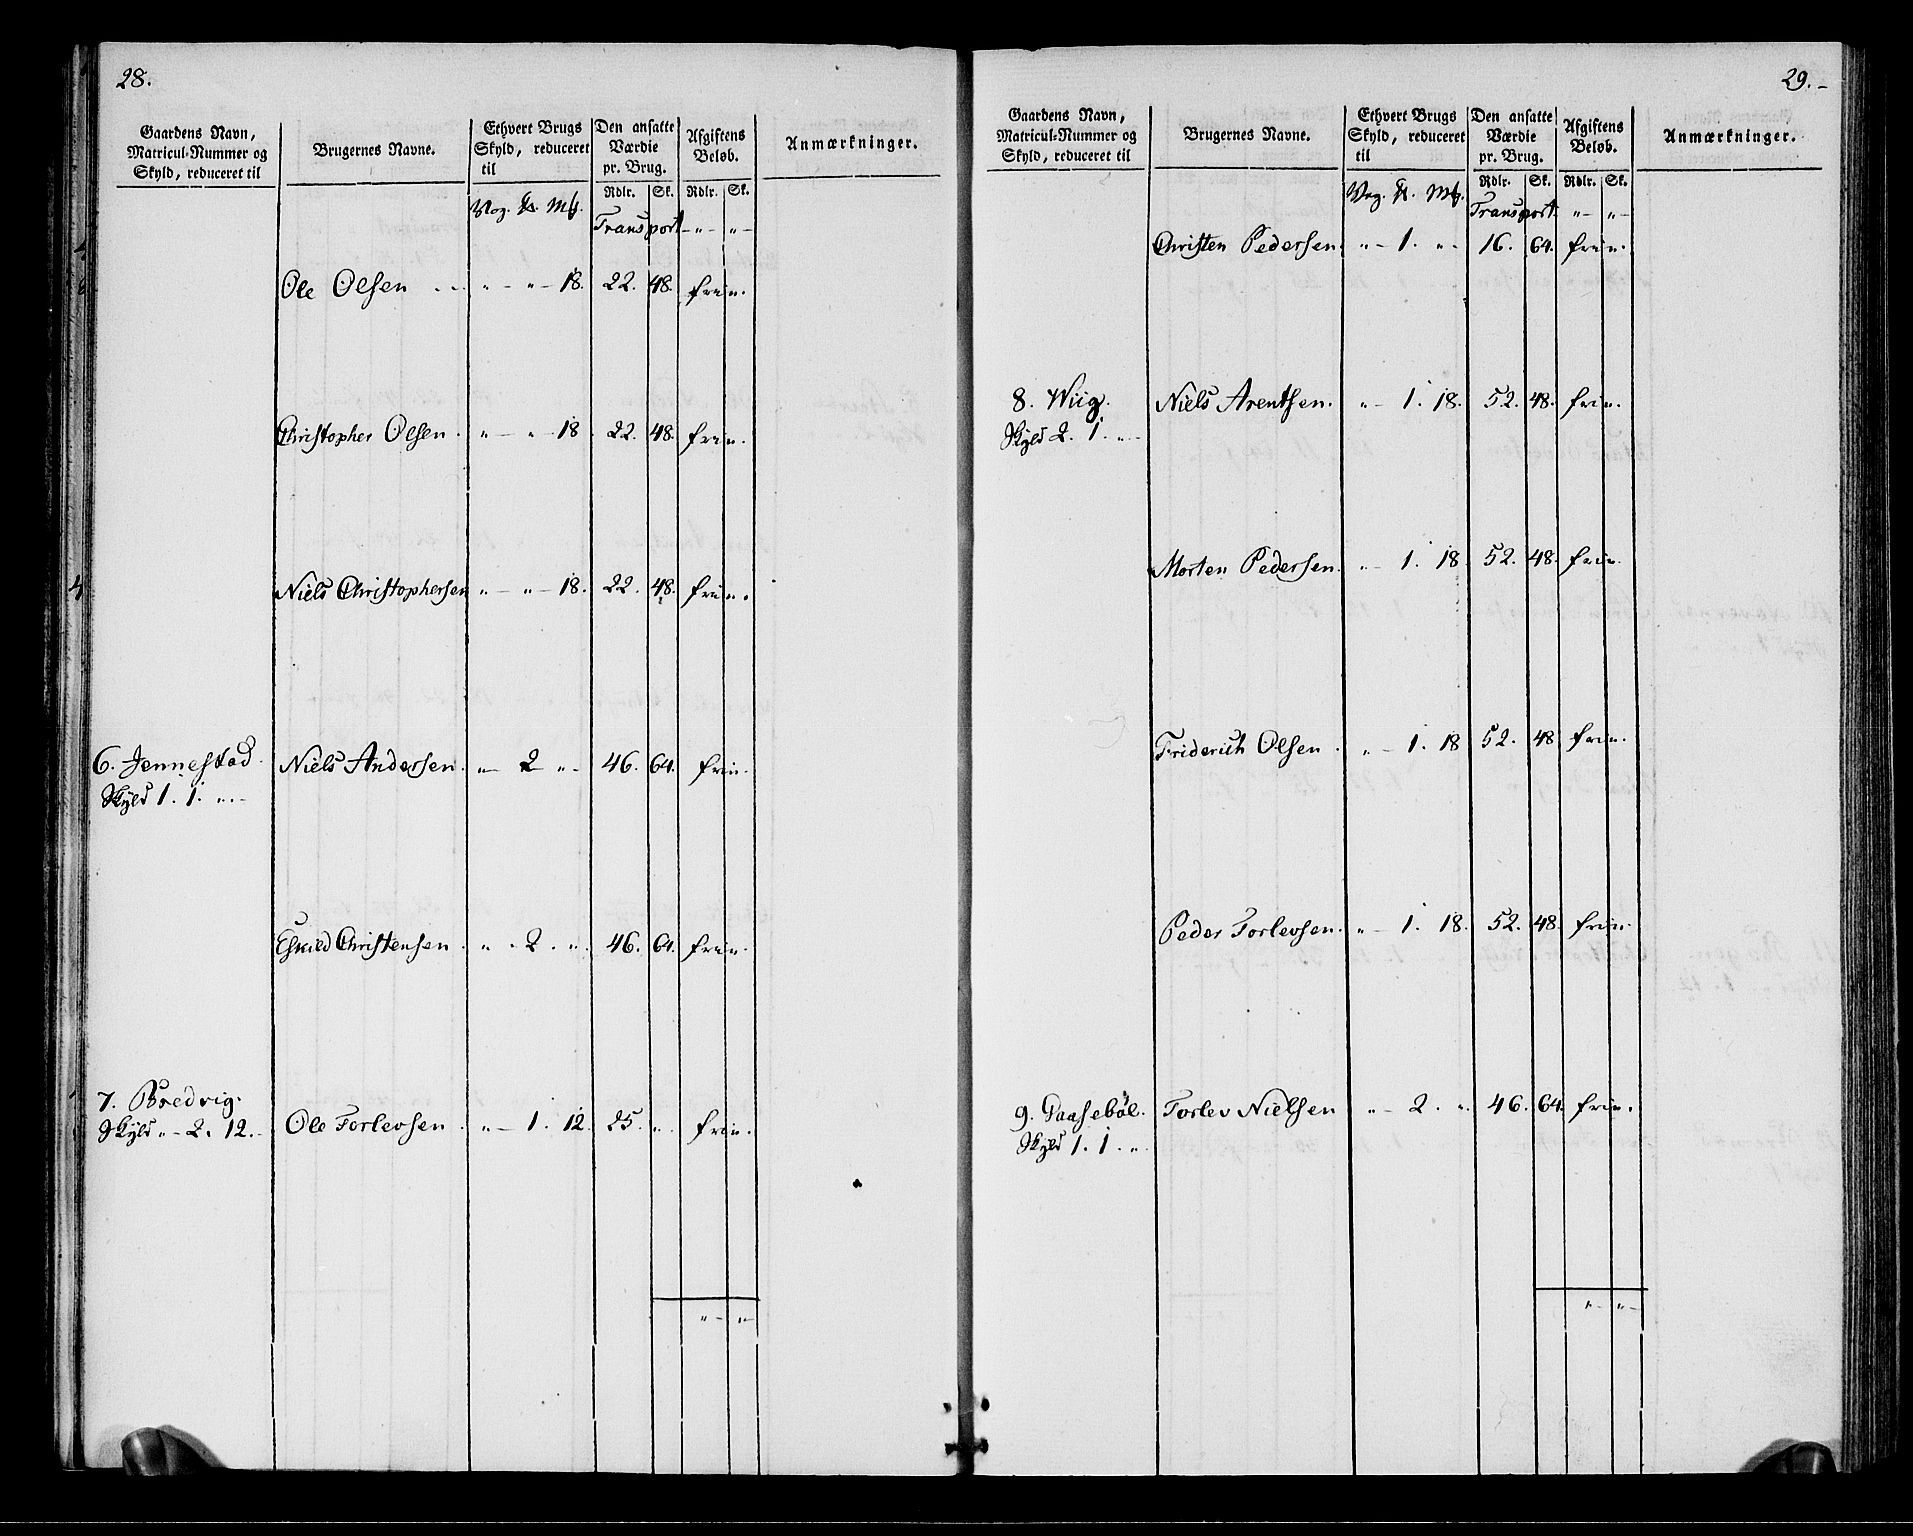 28.
Gaardens Navn, Matricul-Nummer og Skyld, reduceret til
Brugernes Navne.
Ethvert Brugs Skyld, reduceret til
Den ansatte Værdie pr. Brug.
Afgiftens Beløb.
Anmærkninger.
Rdlr. Sk. Rdlr. Sk.
Vog. Mk.
Transport - " - " -
Ole Olsen " - " - 18. 22. 48. frie.
Christopher Olsen. " - " - 18. 22. 48. frie.
Niels Christophersen " - " - 18. 22. 48. frie.
6. Jennestad. Niels Andersen. " - 2 " - 46. 64. frie.
Skyld 1. 1. " -
Eskild Christensen. " - 2. " . 46. 64. frie.
7. Bredvig.
Skyld " - 2. 12. - Ole Torlevsen. " - 1. 12. 25. " . frie.
" - " -
29. -
Gaardens Navn, Matricul-Nummer og Skyld, reduceret til
Brugernes Navne.
Ethvert Brugs Skyld, reduceret til
Den ansatte Værdie pr. Brug.
Afgiftens Beløb.
Anmærkninger.
Rdlr. Sk. Rdlr. Sk.
Vog. Mk.
Transport " - " -
Christen Pedersen. " - 1. " - 16. 64. frie.
8. Wiig. Niels Arentsen. " - 1. 18. 52. 48. frie.
Skyld 2. 1. " -
Morten Pedersen. " - 1. 18. 52. 48. frie.
Friderich Olsen. " - 1. 18 52. 48 frie.
Peder Torlevsen. " - 1. 18. 52. 48. frie.
9. Gaasebøl. Torlev Nielsen " - 2. " . 46. 64. frie.
Skyld 1. 1. " .
" - " -